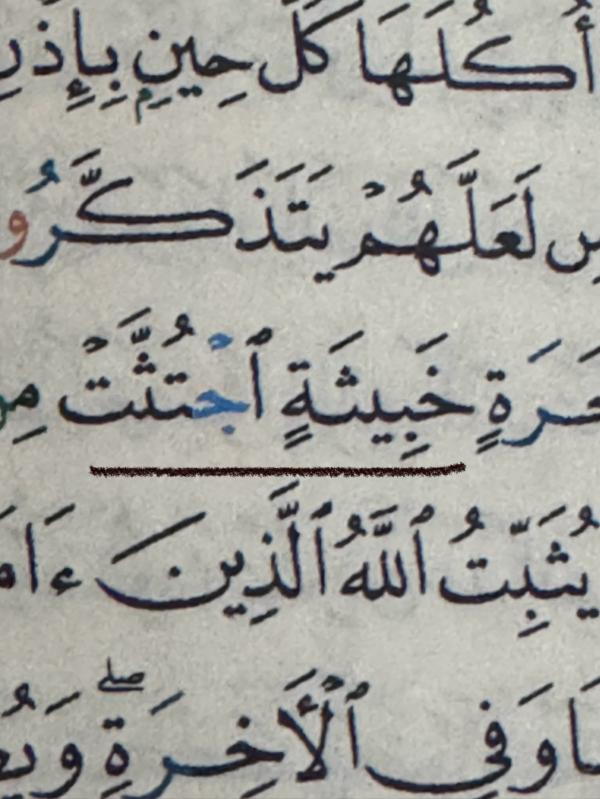 أُكُلَهَا كُلَّ حِينِۭ بِإِذْنِ
لَعَلَّهُمْ يَتَذَكَّرُو
خَبِيثَةٍ ٱجْتُثَّتْ مِن
يُثَبِّتُ ٱللَّهُ ٱلَّذِينَ ءَامَ
وَفِي ٱلْأَخِرَةِۖ وَيُ